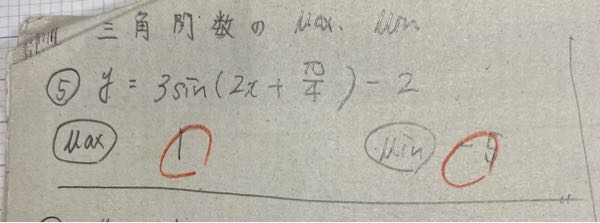 三角関数の Max. Min
⑤ y = 3sin(2x + π/4) - 2
Max 1 Min -5